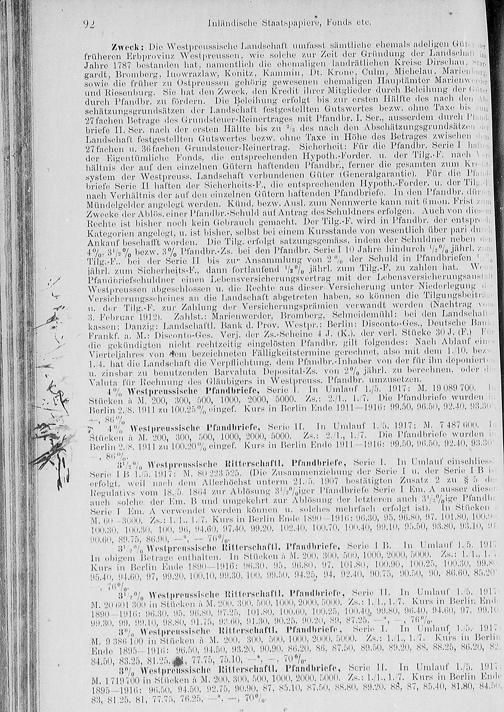 92 Inländische Staatspapiere, Fonds etc.
Zweck: Die Westpreussische Landschaft umfasst sämtliche ehemals adeligen
früheren Erbprovinz Westpreussen, wie solche zur Zeit der Gründung der Landschaft
Jahre 1787 bestanden hat, namentlich die ehemaligen landrätlichen Kreise Dirschau,
gardt, Bromberg, Inowrazlaw, Konitz, Kammin, Dt. Krone, Culm, Michelau,
sowie die früher zu Ostpreussen gehörig gewesenen ehemaligen Hauptämter
und Riesenburg. Sie hat den Zweck, den Kredit ihrer Mitglieder durch Beleihung der
durch Pfandbr. zu fördern. Die Beleihung erfolgt bis zur ersten Hälfte des nach den
schätzungsgrundsätzen der Landschaft festgestellten Gutswertes bezw. ohne Taxe bis
27fachen Betrage des Grundsteuer-Reinertrages mit Pfandbr. I. Ser., ausserdem durch
briefe II. Ser. nach der ersten Hälfte bis zu 2/3 des nach den Abschätzungsgrundsätzen
Landschaft festgestellten Gutswertes bezw. ohne Taxe in Höhe des Betrages zwischen
27fachen u. 36fachen Grundsteuer-Reinertrag. Sicherheit: Für die Pfandbr. Serie I
der Eigentümliche Fonds, die entsprechenden Hypoth.-Forder. u. der Tilg.-F. nach
hältnis der auf den einzelnen Gütern haftenden Pfandbr., ferner die gesamten zum
system der Westpreuss. Landschaft verbundenen Güter (Generalgarantie). Für die
briefe Serie II haften der Sicherheits-F., die entsprechenden Hypoth.-Forder. u. der Tilg.
nach Verhältnis der auf den einzelnen Gütern haftenden Pfandbriefe. In den Pfandbr.
Mündelgelder angelegt werden. Künd. bezw. Ausl. zum Nennwerte kann mit 6 mon. Frist
Zwecke der Ablös. einer Pfandbr.-Schuld auf Antrag des Schuldners erfolgen. Auch von
Rechte ist bisher noch kein Gebrauch gemacht. Der Tilg.-F. wird in Pfandbr. der
Kategorien angelegt, u. ist bisher, selbst bei einem Kursstande von wesentlich über pari
Ankauf beschafft worden. Die Tilg. erfolgt satzungsgemäss, indem der Schuldner neben
4%, 3 1/2% bezw. 3% Pfandbr.-Zs. bei den Pfandbr. Serie I 10 Jahre hindurch 1/2% jährl.
Tilg.-F., bei der Serie II bis zur Ansammlung von 2% der Schuld in Pfandbriefen
jährl. zum Sicherheits-F., dann fortlaufend 1/2% jährl. zum Tilg.-F. zu zahlen hat.
Pfandbriefschuldner einen Lebensversicherungsvertrag mit der Lebensversicherungsanstalt
Westpreussen abgeschlossen u. die Rechte aus dieser Versicherung unter Niederlegung
Versicherungsscheines an die Landschaft abgetreten haben, so können die Tilgungsbeiträge
u. der Tilg.-F. zur Zahlung der Versicherungsprämien verwandt werden (Nachtrag
3. Februar 1912). Zahlst.: Marienwerder, Bromberg, Schneidemühl: bei den
kassen; Danzig: Landschaftl. Bank d. Prov. Westpr.; Berlin: Disconto-Ges., Deutsche
Frankf. a. M.: Disconto-Ges. Verj. der Zs.-Scheine 4 J. (K.), der verl. Stücke 30 J. (F.)
die gekündigten nicht rechtzeitig eingelösten Pfandbr. gilt folgendes: Nach Ablauf
Vierteljahres von dem bezeichneten Fälligkeitstermine gerechnet, also mit dem 1./10. bezw.
1./4. hat die Landschaft die Verpflichtung, dem Pfandbr.-Inhaber von der für ihn
u. zinsbar zu benutzenden Barvaluta Deposital-Zs. von 2% jährl. zu berechnen, oder
Valuta für Rechnung des Gläubigers in Westpreuss. Pfandbr. umzusetzen.
4% Westpreussische Pfandbriefe, Serie I. In Umlauf 1./5. 1917: M. 19 089 700.
Stücken à M. 200, 300, 500, 1000, 2000, 5000. Zs.: 2./1., 1./7. Die Pfandbriefe wurden
Berlin 2./8. 1911 zu 100.25% eingef. Kurs in Berlin Ende 1911—1916: 99.50, 96.50, 92.40, 93.30
—, 86%.
4% Westpreussische Pfandbriefe, Serie II. In Umlauf 1./5. 1917: M. 7 487 600.
Stücken à M. 200, 300, 500, 1000, 2000, 5000. Zs.: 2./1., 1./7. Die Pfandbriefe wurden
Berlin 2./8. 1911 zu 100.20% eingef. Kurs in Berlin Ende 1911—1916: 99.50, 96.50, 92.40, 93.30
, 86%.
3 1/2% Westpreussische Ritterschaftl. Pfandbriefe, Serie I. In Umlauf
Serie I B 1./5. 1917: M. 80 223 525. (Die Zusammenziehung der Serie I u. der Serie I B
erfolgt, weil nach dem Allerhöchst unterm 21./5. 1907 bestätigten Zusatz 2 zu § 5
Regulativs vom 18./5. 1864 zur Ablösung 3 1/2%iger Pfandbriefe Serie I Em. A ausser
auch solche der Em. B und umgekehrt zur Ablösung der letzteren auch 3 1/2%ige
Serie I Em. A verwendet werden können u. solches mehrfach erfolgt ist). In Stücken
M. 60—3000. Zs.: 1./1., 1./7. Kurs in Berlin Ende 1890—1916: 96.30, 95, 96.80, 97, 101.80,
100.30, 100.30, 100, 96, 94.60, 97.40, 99.20, 102.40, 100.70, 100.40, 99.10, 95.50, 93.80, 93.10,
90.60, 89.75, 86.90, —*, — 76%.
3 1/2% Westpreussische Ritterschaftl. Pfandbriefe, Serie I B. In Umlauf 1./5.
In obigem Betrage enthalten. In Stücken à M. 200, 300, 500, 1000, 2000, 5000. Zs.: 1./1., 1./7.
Kurs in Berlin Ende 1890—1916: 96.30, 95, 96.80, 97, 101.80, 100.90, 100.25, 100.30,
95.40, 94.60, 97, 99.20, 100.10, 99.30, 100, 99.50, 94.25, 94, 92.40, 90.75, 90.50, 90, 86.60,
76%.
3 1/2% Westpreussische Ritterschaftl. Pfandbriefe, Serie II. In Umlauf 1./5.
M. 20 601 300 in Stücken à M. 200, 300, 500, 1000, 2000, 5000. Zs.: 1./1., 1./7. Kurs in Berlin
1890—1916: 96.30, 95, 96.80, 97.25,
99.30, 99, 99.10,
3% Westpreussische Ritterschaftl. Pfandbriefe, Serie I. In Umlauf 1./5.
M. 9 386 100 in Stücken à M. 200, 300, 500, 1000, 2000, 5000. Zs.: 1./1., 1./7. Kurs in Berlin
Ende 1895—1916: 96.50, 94.50, 93.20, 90.90, 86.20, 86, 87.50, 89.50, 89.20, 88, 88.25, 86.20,
84.50, 83.25, 81.25, 77.75, 75.10, —*, —, 70%.
3% Westpreussische Ritterschaftl. Pfandbriefe, Serie II. In Umlauf 1./5.
M. 1 719 700 in Stücken à M. 200, 300, 500, 1000, 2000, 5000. Zs.: 1./1., 1./7. Kurs in Berlin Ende
1895—1916: 96.50, 94.50, 92.75, 90.90, 87, 85.10, 87.50, 88.80, 89.20, 88, 87, 85.40, 81.80,
83, 81.25, 81, 77.75, 76.25, —*, —, 70%.